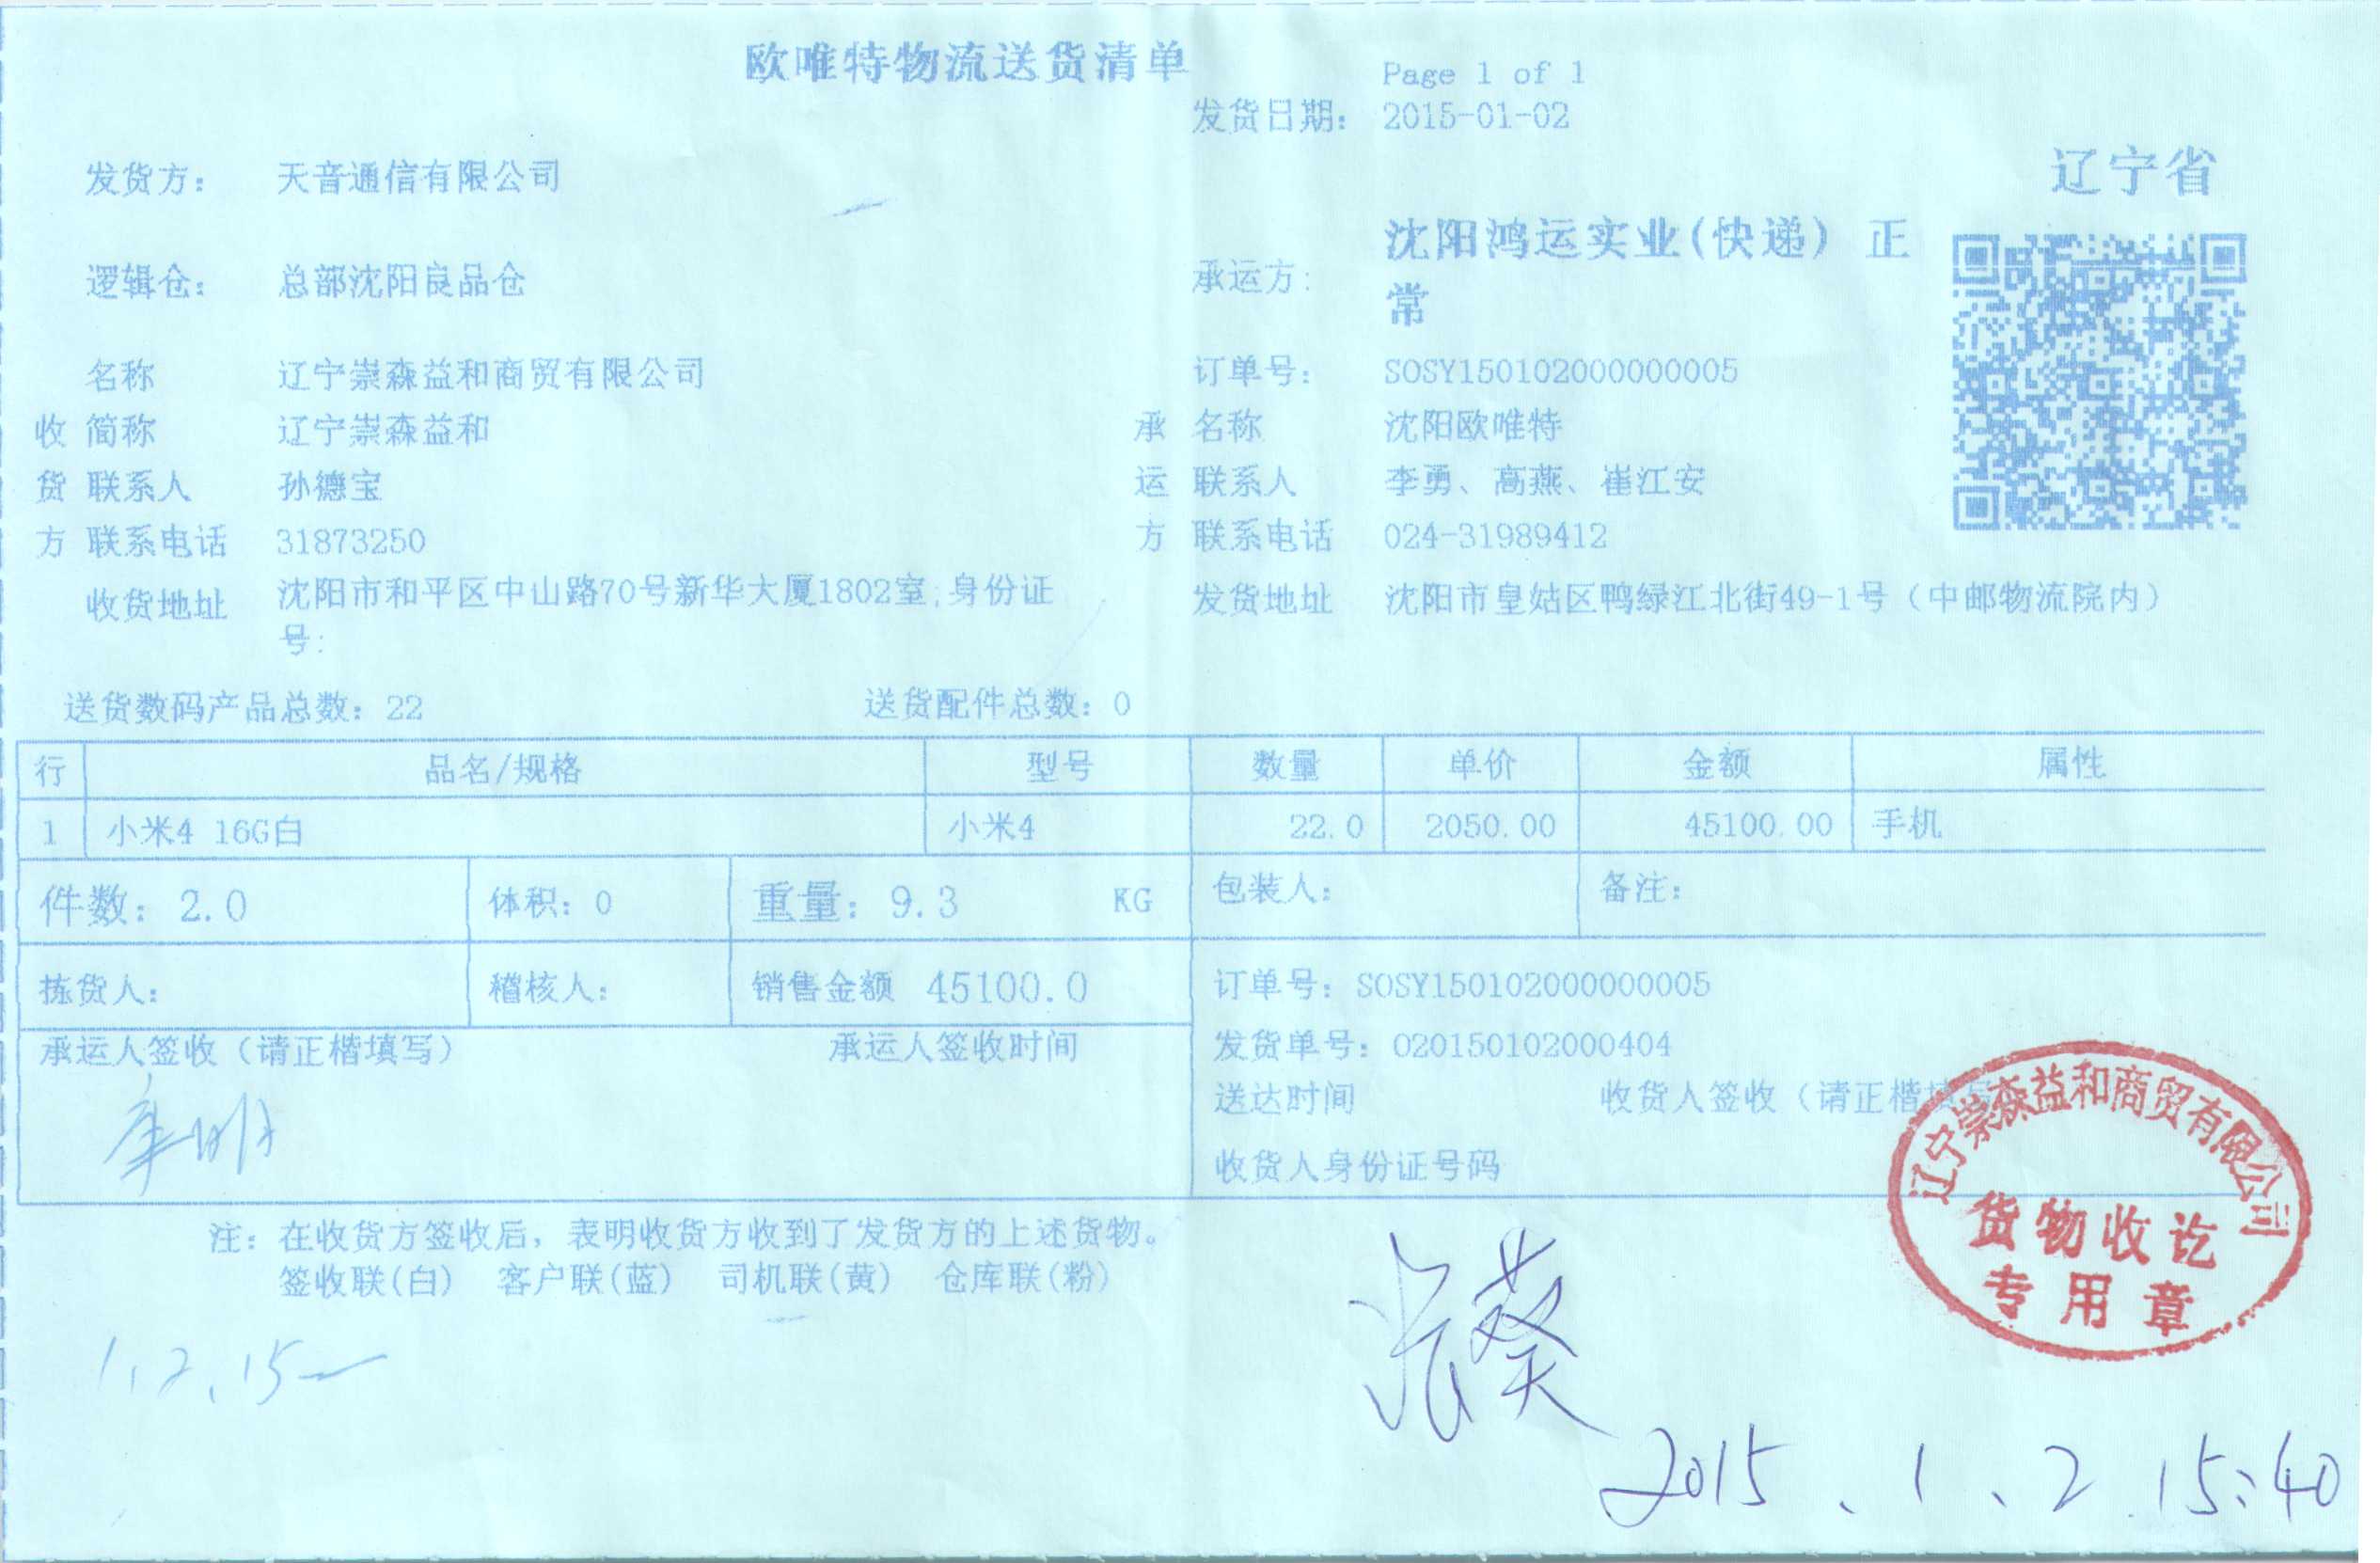 欧唯特物流送货清单
Page 1 of 1
发货日期: 2015-01-02
辽宁省
发货方: 天音通信有限公司
逻辑仓: 总部沈阳良品仓
承运方: 沈阳鸿运实业(快递) 正常
名称 辽宁崇森益和商贸有限公司
订单号: SOSY150102000000005
收货方
简称 辽宁崇森益和
联系人 孙德宝
联系电话 31873250
收货地址 沈阳市和平区中山路70号新华大厦1802室;身份证
号:
承运方
名称 沈阳欧唯特
联系人 李勇、高燕、崔江安
联系电话 024-31989412
发货地址 沈阳市皇姑区鸭绿江北街49-1号（中邮物流院内）
送货数码产品总数: 22 送货配件总数: 0
行 品名/规格 型号 数量 单价 金额 属性
1 小米4 16G白 小米4 22.0 2050.00 45100.00 手机
件数: 2.0 体积: 0 重量: 9.3 KG 包装人: 备注:
拣货人: 稽核人: 销售金额 45100.0 订单号: SOSY150102000000005
承运人签收（请正楷填写） 承运人签收时间
发货单号: 020150102000404
送达时间 收货人签收（请正楷填
收货人身份证号码
辽宁崇森益和商贸有限公司
货物收讫
专用章
注: 在收货方签收后，表明收货方收到了发货方的上述货物。
签收联(白) 客户联(蓝) 司机联(黄) 仓库联(粉)
1.2.15
2015.1.2 15:40